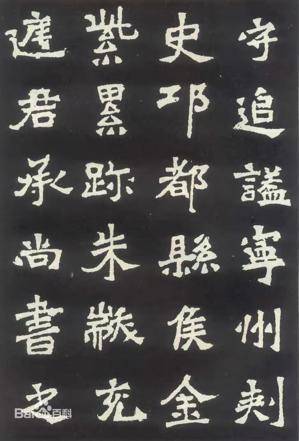 守追謚寧州刺
史邛都縣侯金
紫累跡朱黻充
庭君承尚書之
Bai 百科